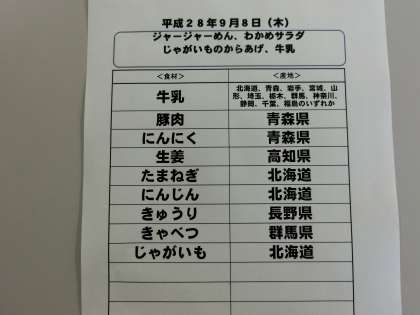 平成28年9月8日（木）
ジャージャーめん、わかめサラダ
じゃがいものからあげ、牛乳
＜食材＞ ＜産地＞
牛乳 北海道、青森、岩手、宮城、山
形、埼玉、栃木、群馬、神奈川、
静岡、千葉、福島のいずれか
豚肉 青森県
にんにく 青森県
生姜 高知県
たまねぎ 北海道
にんじん 北海道
きゅうり 長野県
きゃべつ 群馬県
じゃがいも 北海道